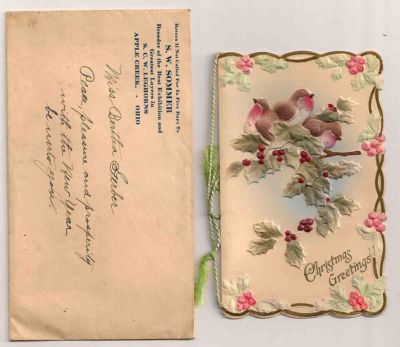 Return If Not Called For In Five Days To
S. W. SOMMER
Breeder of the Best Exhibition and
Greatest Layers in
S. C. W. LEGHORNS
APPLE CREEK. - OHIO
Miss Bertha Gerber
Peace, pleasure and prosperity
with the New Year
be unto you.
Christmas
Greetings